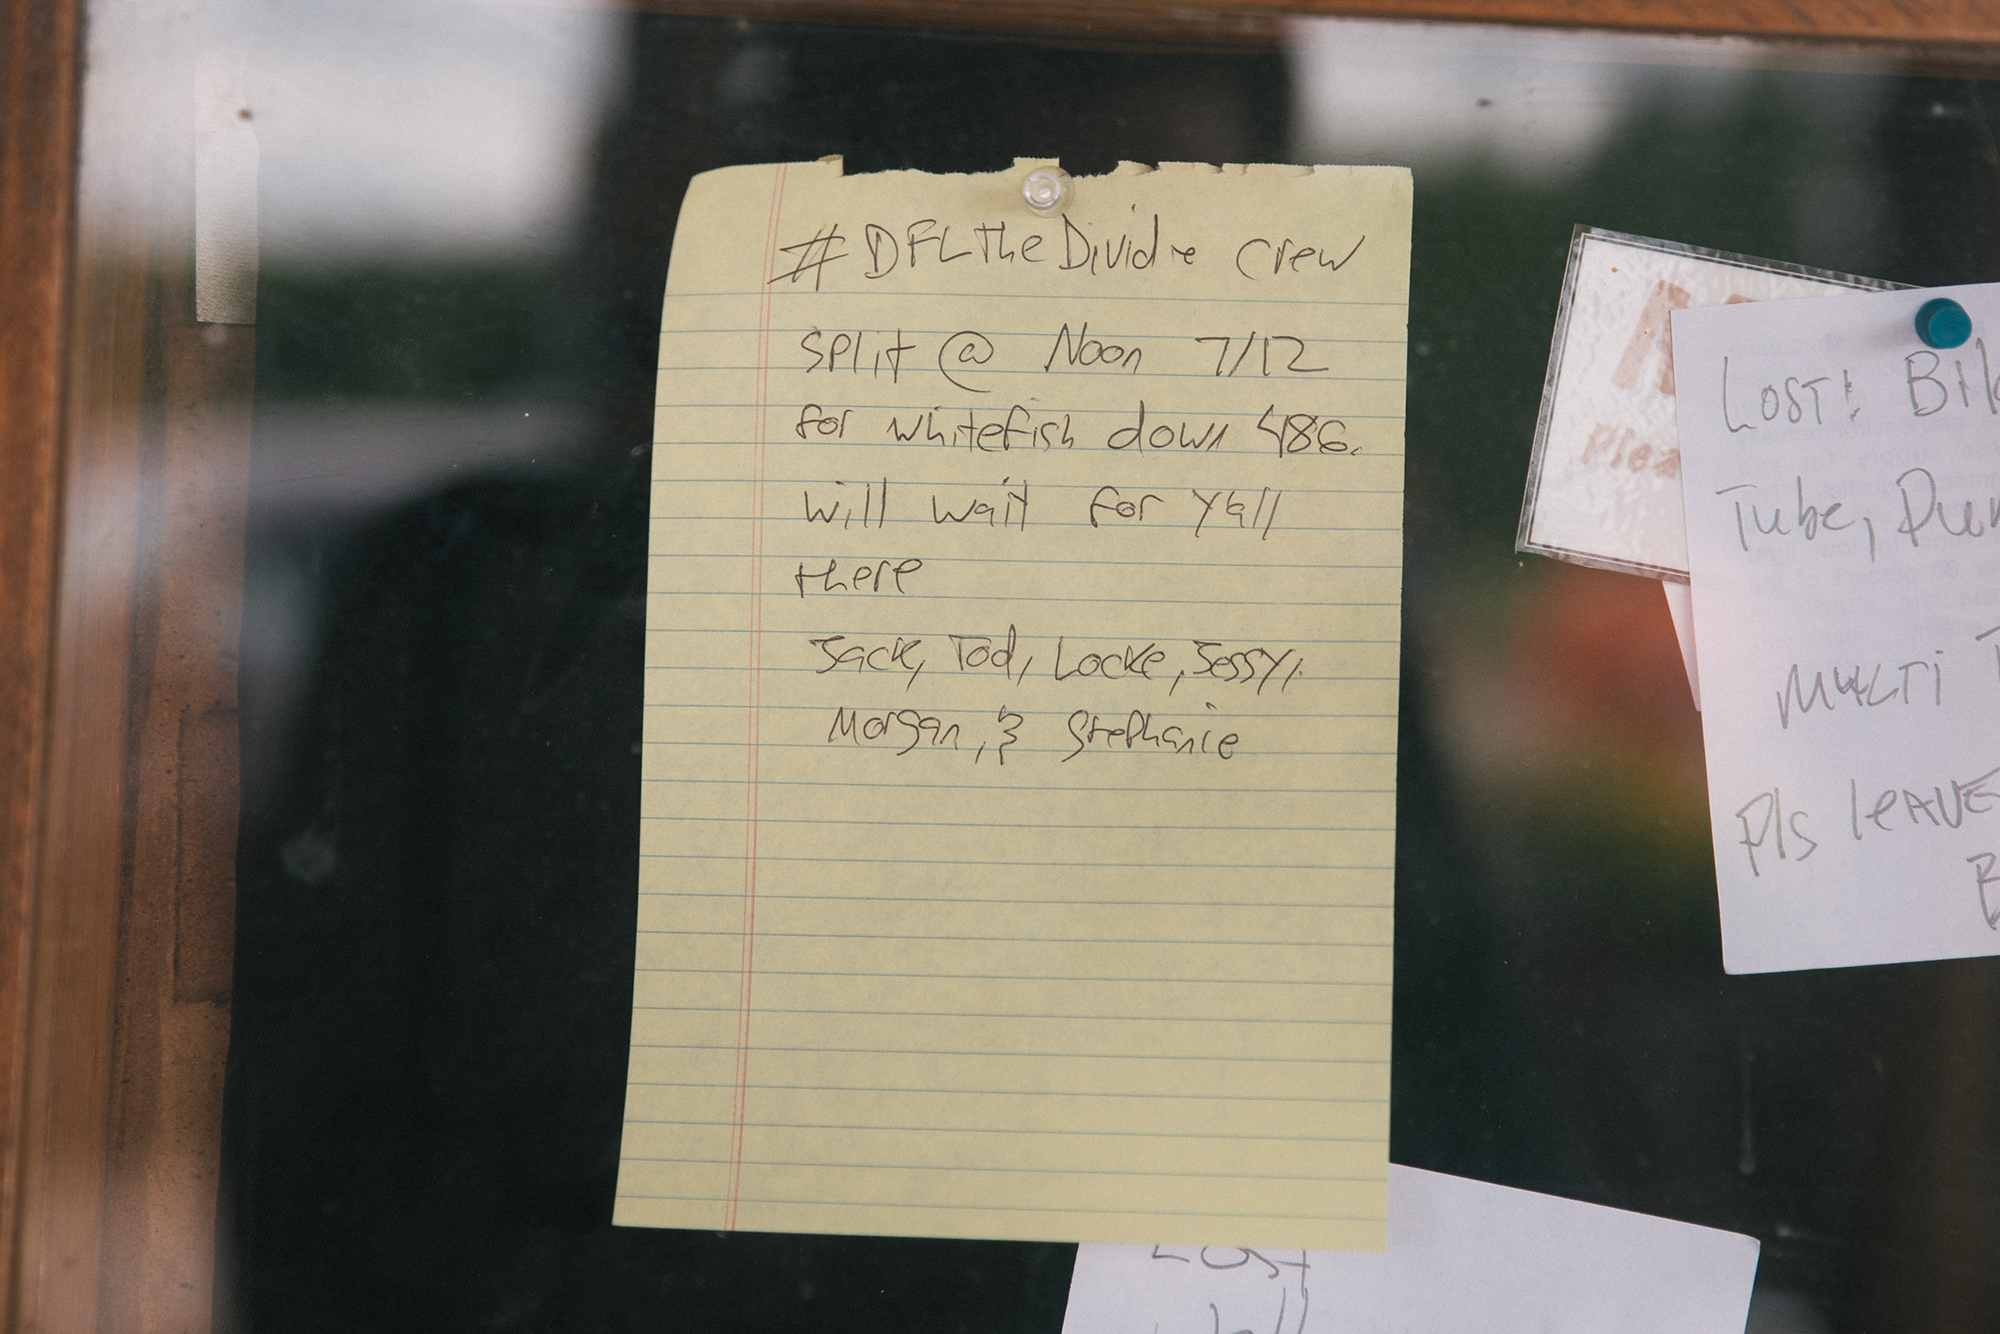 #DFLtheDivide crew
split @ Noon 7/12
for whitefish down 486.
will wait for yall
there
Jack, Tod, Locke, Jessy,
Morgan, & Stephanie
Plea
Lost: Bik
Tube, Pum
MULTI T
Pls leAVE
B
Lost